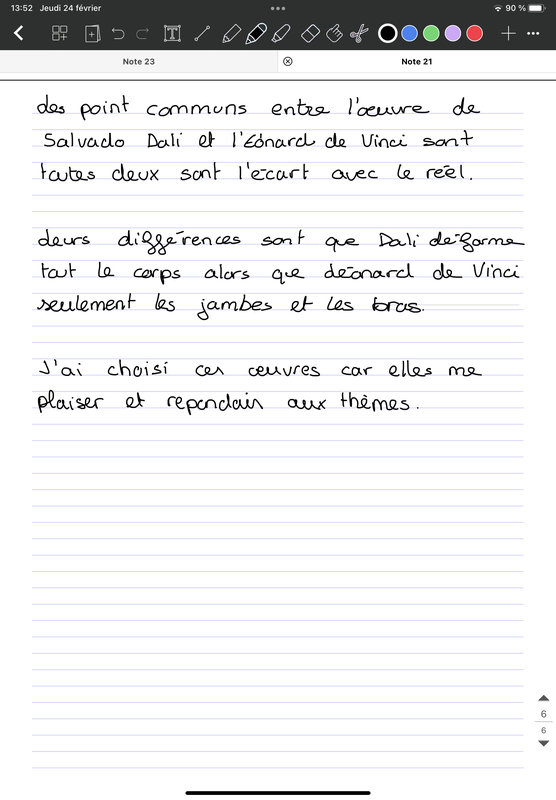 13:52 Jeudi 24 février
90 %
Note 23
Note 21
des point communs entre l'œuvre de
Salvado Dali et l'Léonard de Vinci sont
toutes deux sont l'écart avec le réel.
leurs différences sont que Dali dé-forme
tout le corps alors que Léonard de Vinci
seulement les jambes et les bras.
J'ai choisi ces œuvres car elles me
plaiser et repondair aux thèmes.
6
6